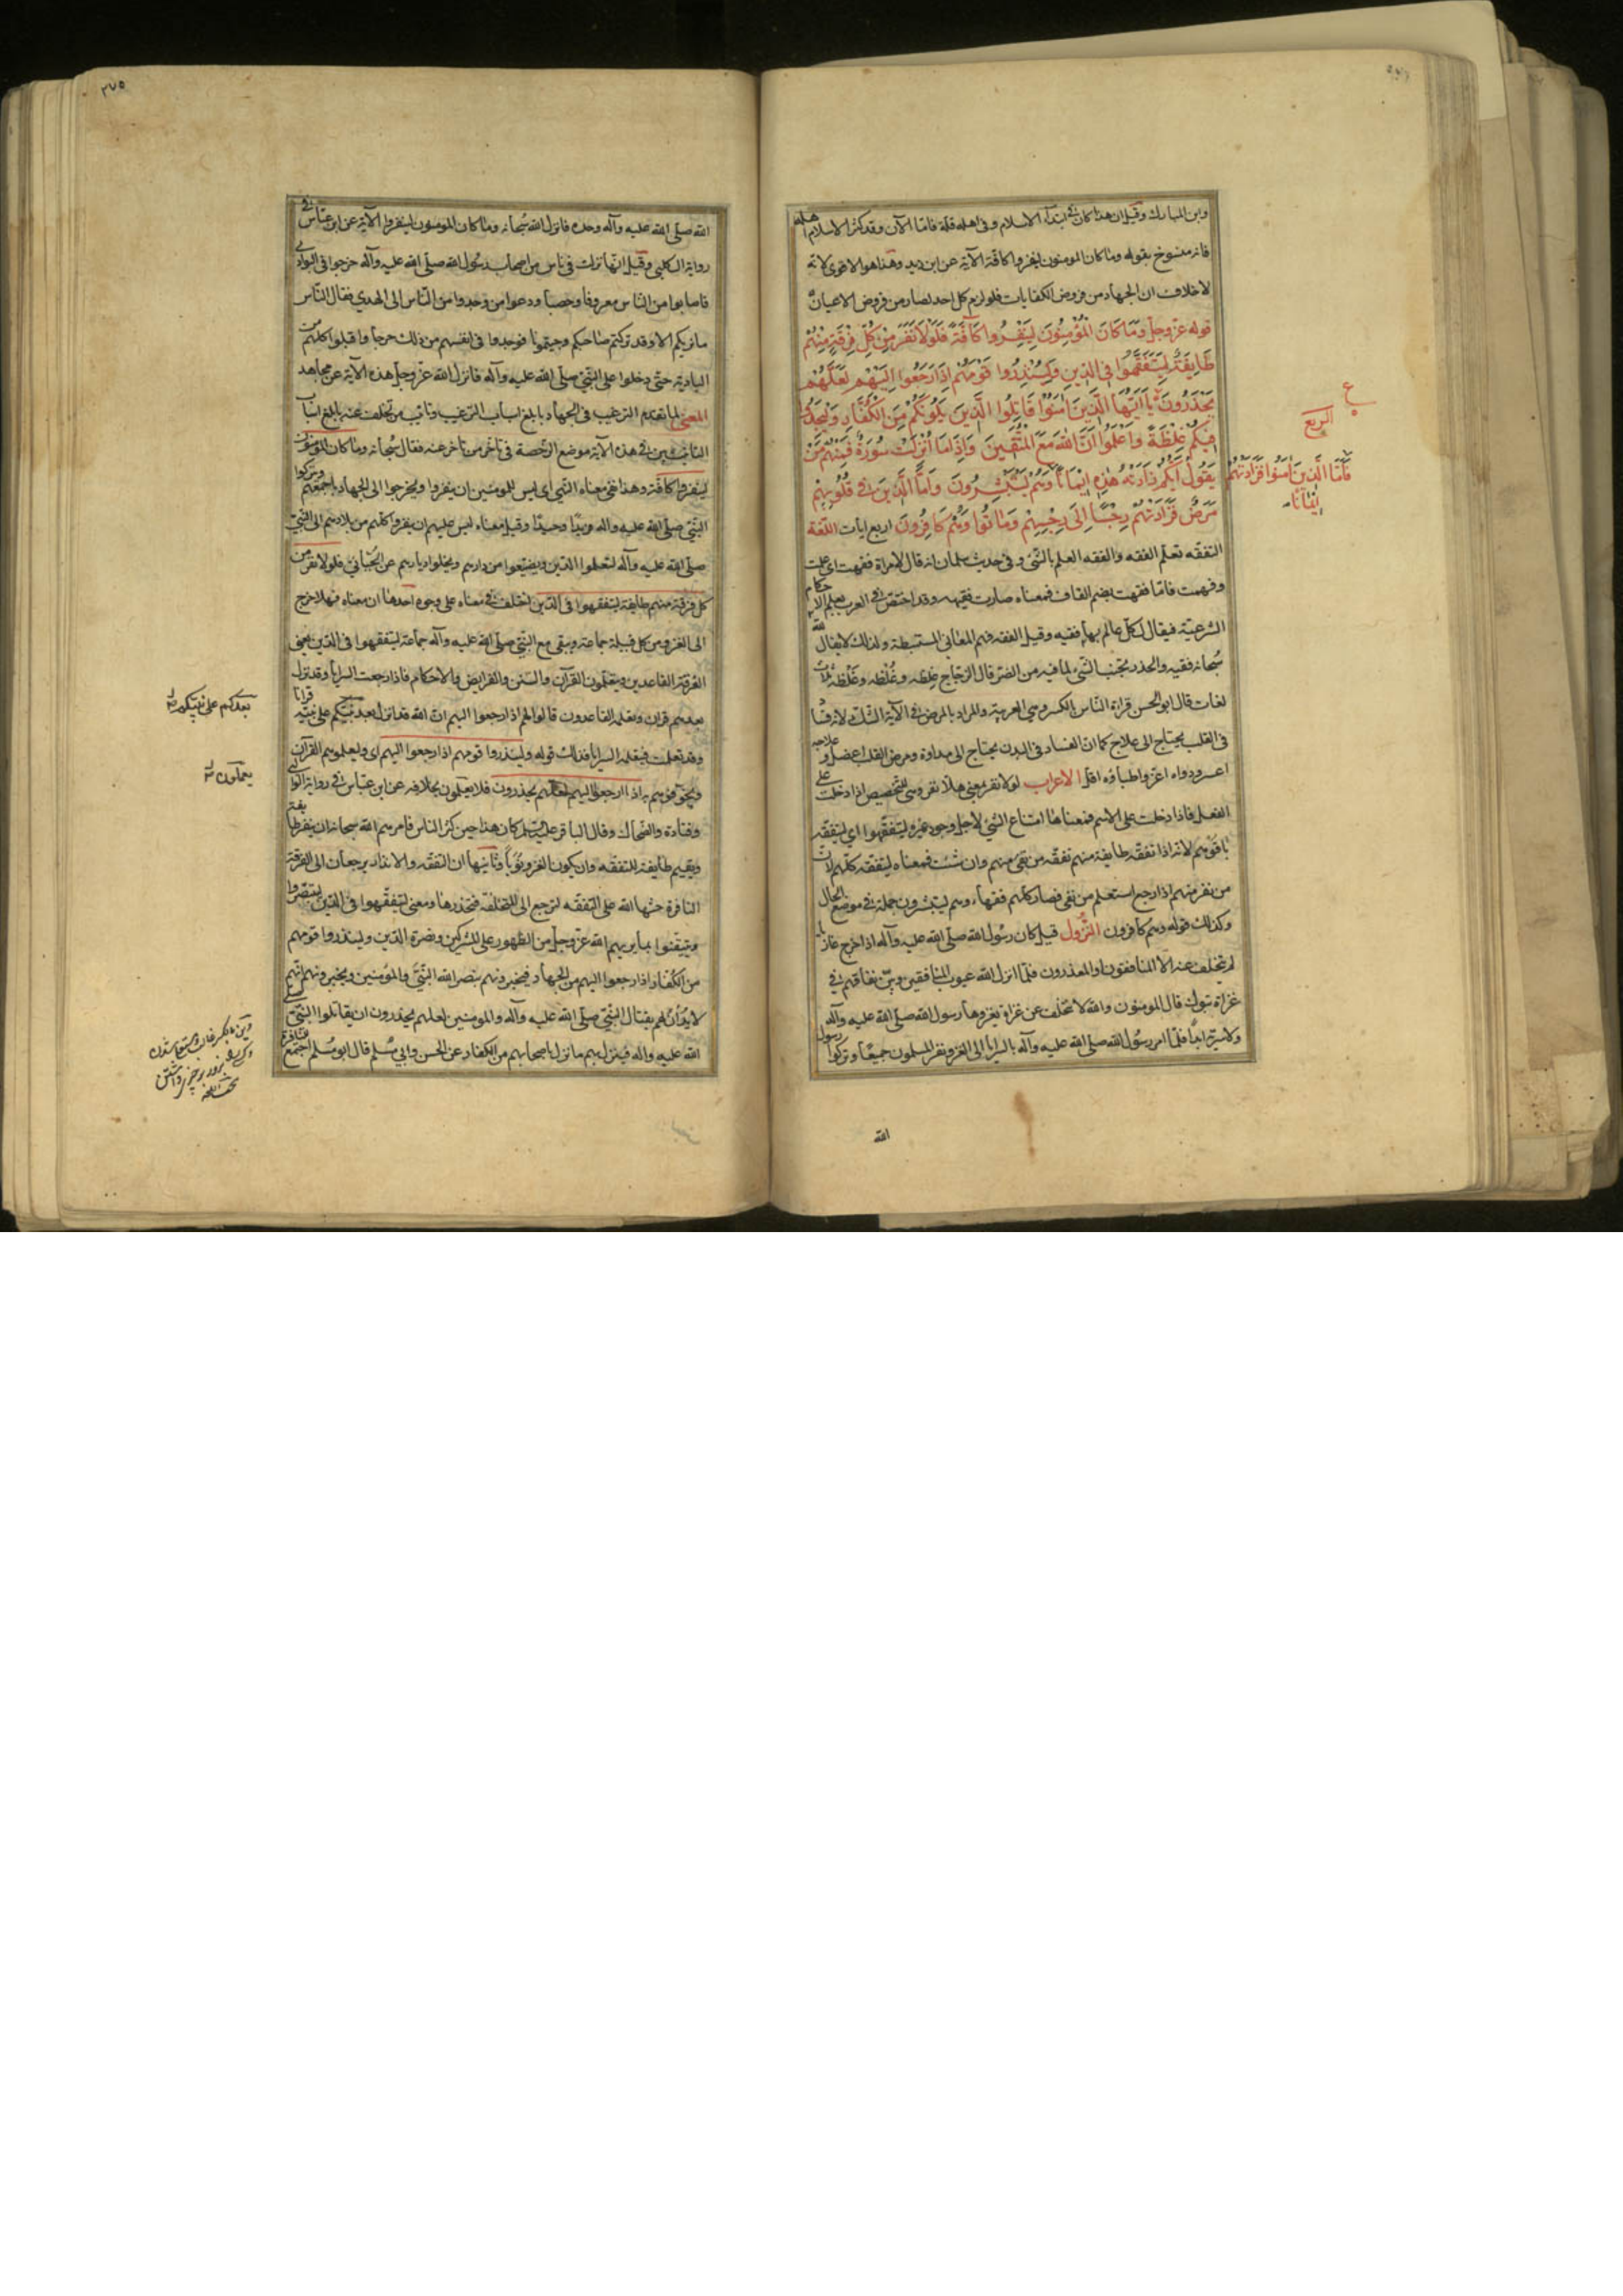 وبن المبارك وقيل ان هذا كان في ابتداء الاسلام وفى اهله قلة فامّا الآن وقد كثر الاسلام واهله
فانه منسوخ بقوله وما كان المومنون لينفروا كافّة الآية عن ابن زيد وهذا هو الاقوى لانه
لا خلاف ان الجهاد من فروض الكفايات فلو لزم كل احد لصار من فروض الاعيان
قوله عزّ وجلّ وَمَا كَانَ الْمُؤْمِنُونَ لِيَنْفِرُوا كَآفَّةً فَلَوْلَا نَفَرَ مِنْ كُلِّ فِرْقَةٍ مِنْهُمْ
طَايِفَةٌ لِيَتَفَقَّهُوا فِى الدِّينِ وَلِيُنْذِرُوا قَوْمَهُمْ اِذَا رَجَعُوا اِلَيْهِمْ لَعَلَّهُمْ
يَحْذَرُونَ يَا اَيُّهَا الَّذِينَ اٰمَنُوا قَاتِلُوا الَّذِينَ يَلُونَكُمْ مِنَ الْكُفَّارِ وَلْيَجِدُوا
فِيكُمْ غِلْظَةً وَاعْلَمُوا اَنَّ اللّٰهَ مَعَ الْمُتَّقِينَ وَاِذَا مَا اُنْزِلَتْ سُورَةٌ فَمِنْهُمْ مَنْ
يَقُولُ اَيُّكُمْ زَادَتْهُ هٰذِهِ اِيْمَانًا وَهُمْ يَسْتَبْشِرُونَ وَاَمَّا الَّذِينَ فِى قُلُوبِهِمْ
مَرَضٌ فَزَادَتْهُمْ رِجْسًا اِلَى رِجْسِهِمْ وَمَاتُوا وَهُمْ كَافِرُونَ اربع ايات اللّغة
التفقّه تعلّم الفقه والفقه العلم بالشّئ وفى حديث سلمان انه قال لامراة فقهت اى علمت
وفهمت فامّا فقهت بضم القاف فمعناه صارت فقيهه وقد اختصّ فى العرب بعلم الاحكام
الشرعيّة فيقال لكلّ عالم بها فقيه وقيل الفقه فهم المعانى المستنبطة ولذلك لا يقال الله
سُبحانه فقيه والحذر تجنب الشّئ لما فيه من الضرّ قال الزجّاج غِلظه وغُلظه وغَلظه ثلاث
لغات قال ابو الحسن قراءة النّاس بالكسر وهى العربية والمراد بالمرض فى الآية الشّكّ ولانه فسا
فى القلب يحتاج الى علاج كما ان الفساد فى البدن يحتاج الى مداوة ومرض القلب اعضل وعلاجه
اعسر ودواء اعزّ واطباؤه اقلّ الاعراب لولا نفر بمعنى هلّا نفر وهى للتحضيص اذا دخلت على
الفعل فاذا دخلت على الاسم فمعناها امتناع الشّئ لاجل وجود غيره ليتفقّهوا اى ليتفقّه
باقوهم لانه اذا تفقّه طايفة منهم تفقّه من بقى منهم وان شئت فمعناه ليتفقّه كلّهم لانّ
من نفر منهم اذا رجع استعلم من بقى فصار كلّهم فقهاء وهم يستبشرون جملة فى موضع الحال
وكذلك قوله وهم كافرون النّزُول قيل كان رسُول الله صلّى الله عليه وآله اذا خرج غازيا
لم يتخلّف عنه الّا المنافقون والمعذرون فلمّا انزل الله عيوب المنافقين وبيّن نفاقهم فى
غزاة تبوك قال المومنون والله لا نتخلّف عن غزاة يغزوها رسول الله صلى الله عليه وآله
ولا سَريّة ابدًا فلمّا امر رسُول الله صلى الله عليه وآله بالسرايا الى الغزو نفر المسلمون جميعًا وتركوا رسول
الله
الربع
فَاَمَّا الَّذِينَ اٰمَنُوا فَزَادَتْهُمْ
اِيْمَانًا
٣٧٥
الله صلّى الله عليه وآله وحده فانزل الله سُبحانه وما كان المومنون لينفروا الآية عن ابن عبّاس فى
رواية الكلبى وقيل انّها نزلت فى ناس من اصحاب رسُول الله صلّى الله عليه وآله خرجوا فى البوادى
فاصابوا من النّاس معروفا وخصبا ودعوا من وجدوا من النّاس الى الهدى فقال النّاس
ما نريكم الا وقد تركتم صاحبكم وجيتمونا فوجدوا فى انفسهم من ذلك حرجا واقبلوا كلهم من
البادية حتّى دخلوا على النّبىّ صلّى الله عليه وآله فانزل الله عزّ وجلّ هذه الآية عن مجاهد
المعنى لما تقدم الترغيب فى الجهاد بابلغ اسباب الترغيب وتانيب من تخلّف عنه بابلغ اسباب
التانيب بيّن فى هذه الآية موضع الرّخصة فى تاخّر من تاخّر عنه فقال سُبحانه وما كان المومنون
لينفروا كافّة وهذا نفى معناه النّهى اى ليس للمومنين ان ينفروا ويخرجوا الى الجهاد باجمعهم ويتركوا
النّبىّ صلّى الله عليه واله فريدًا وحيدًا وقيل معناه ليس عليهم ان ينفروا كلّهم من بلادهم الى النّبىّ
صلّى الله عليه وآله لتعلموا الدّين ويضيّعوا من ورائهم ويخلوا ديارهم عن الجُبّائى فلولا نفر من
كل فرقة منهم طايفة ليتفقهوا فى الدّين اختلف فى معناه على وجوه احدها ان معناه فهلا خرج
الى الغزو من كل قبيلة جماعة ويبقى مع النّبىّ صلّى الله عليه وآله جماعة ليتفقهوا فى الدّين يعنى
الفرقة القاعدين ويتعلّمون القرآن والسّنن والفرايض والاحكام فاذا رجعت السرايا وقد نزل
بعدهم قران وتعلمه القاعدون قالوا لهم اذا رجعوا اليهم ان الله قد انزل بعدكم على نبيّه قرانا
وقد تعلمناه فيتعلمه السرايا فذلك قوله ولينذروا قومهم اذا رجعوا اليهم اى وليعلموهم القرآن
ويخوّفوهم به اذا رجعوا اليهم لعلّهم يحذرون فلا يعملون بخلافه عن ابن عبّاس فى رواية الوالبى
وقتادة والضّحاك وقال الباقر عليه السلم كان هذا حين كثر الناس فامرهم الله سبحانه ان ينفر طايفة
ويقيم طايفة للتفقّه وان يكون الغزو نُوَبًا وثانيها ان التفقّه والانذار يرجعان الى الفرقة
النافرة حثّها الله على التفقّه لترجع الى المتخلّفة فتحذرها ومعنى ليتفقّهوا فى الدّين ليتبصّروا
ويتيقّنوا بما يريهم الله عزّ وجلّ من الظّهور على المشركين ونصرة الدّين ولينذروا قومهم
من الكفّار اذا رجعوا اليهم من الجهاد فيخبرونهم بنصر الله النّبىّ والمؤمنين ويخبرونهم انّهم
لا يدان لهم بقتال النّبىّ صلّى الله عليه وآله والمومنين لعلهم يحذرون ان يقاتلوا النّبىّ صلى
الله عليه واله فينزل بهم ما نزل باصحابهم من الكفار عن الحسن وابى مُسْلم قال ابو مُسْلم اجتمع
بعدكم على نبيّكم
يعملون